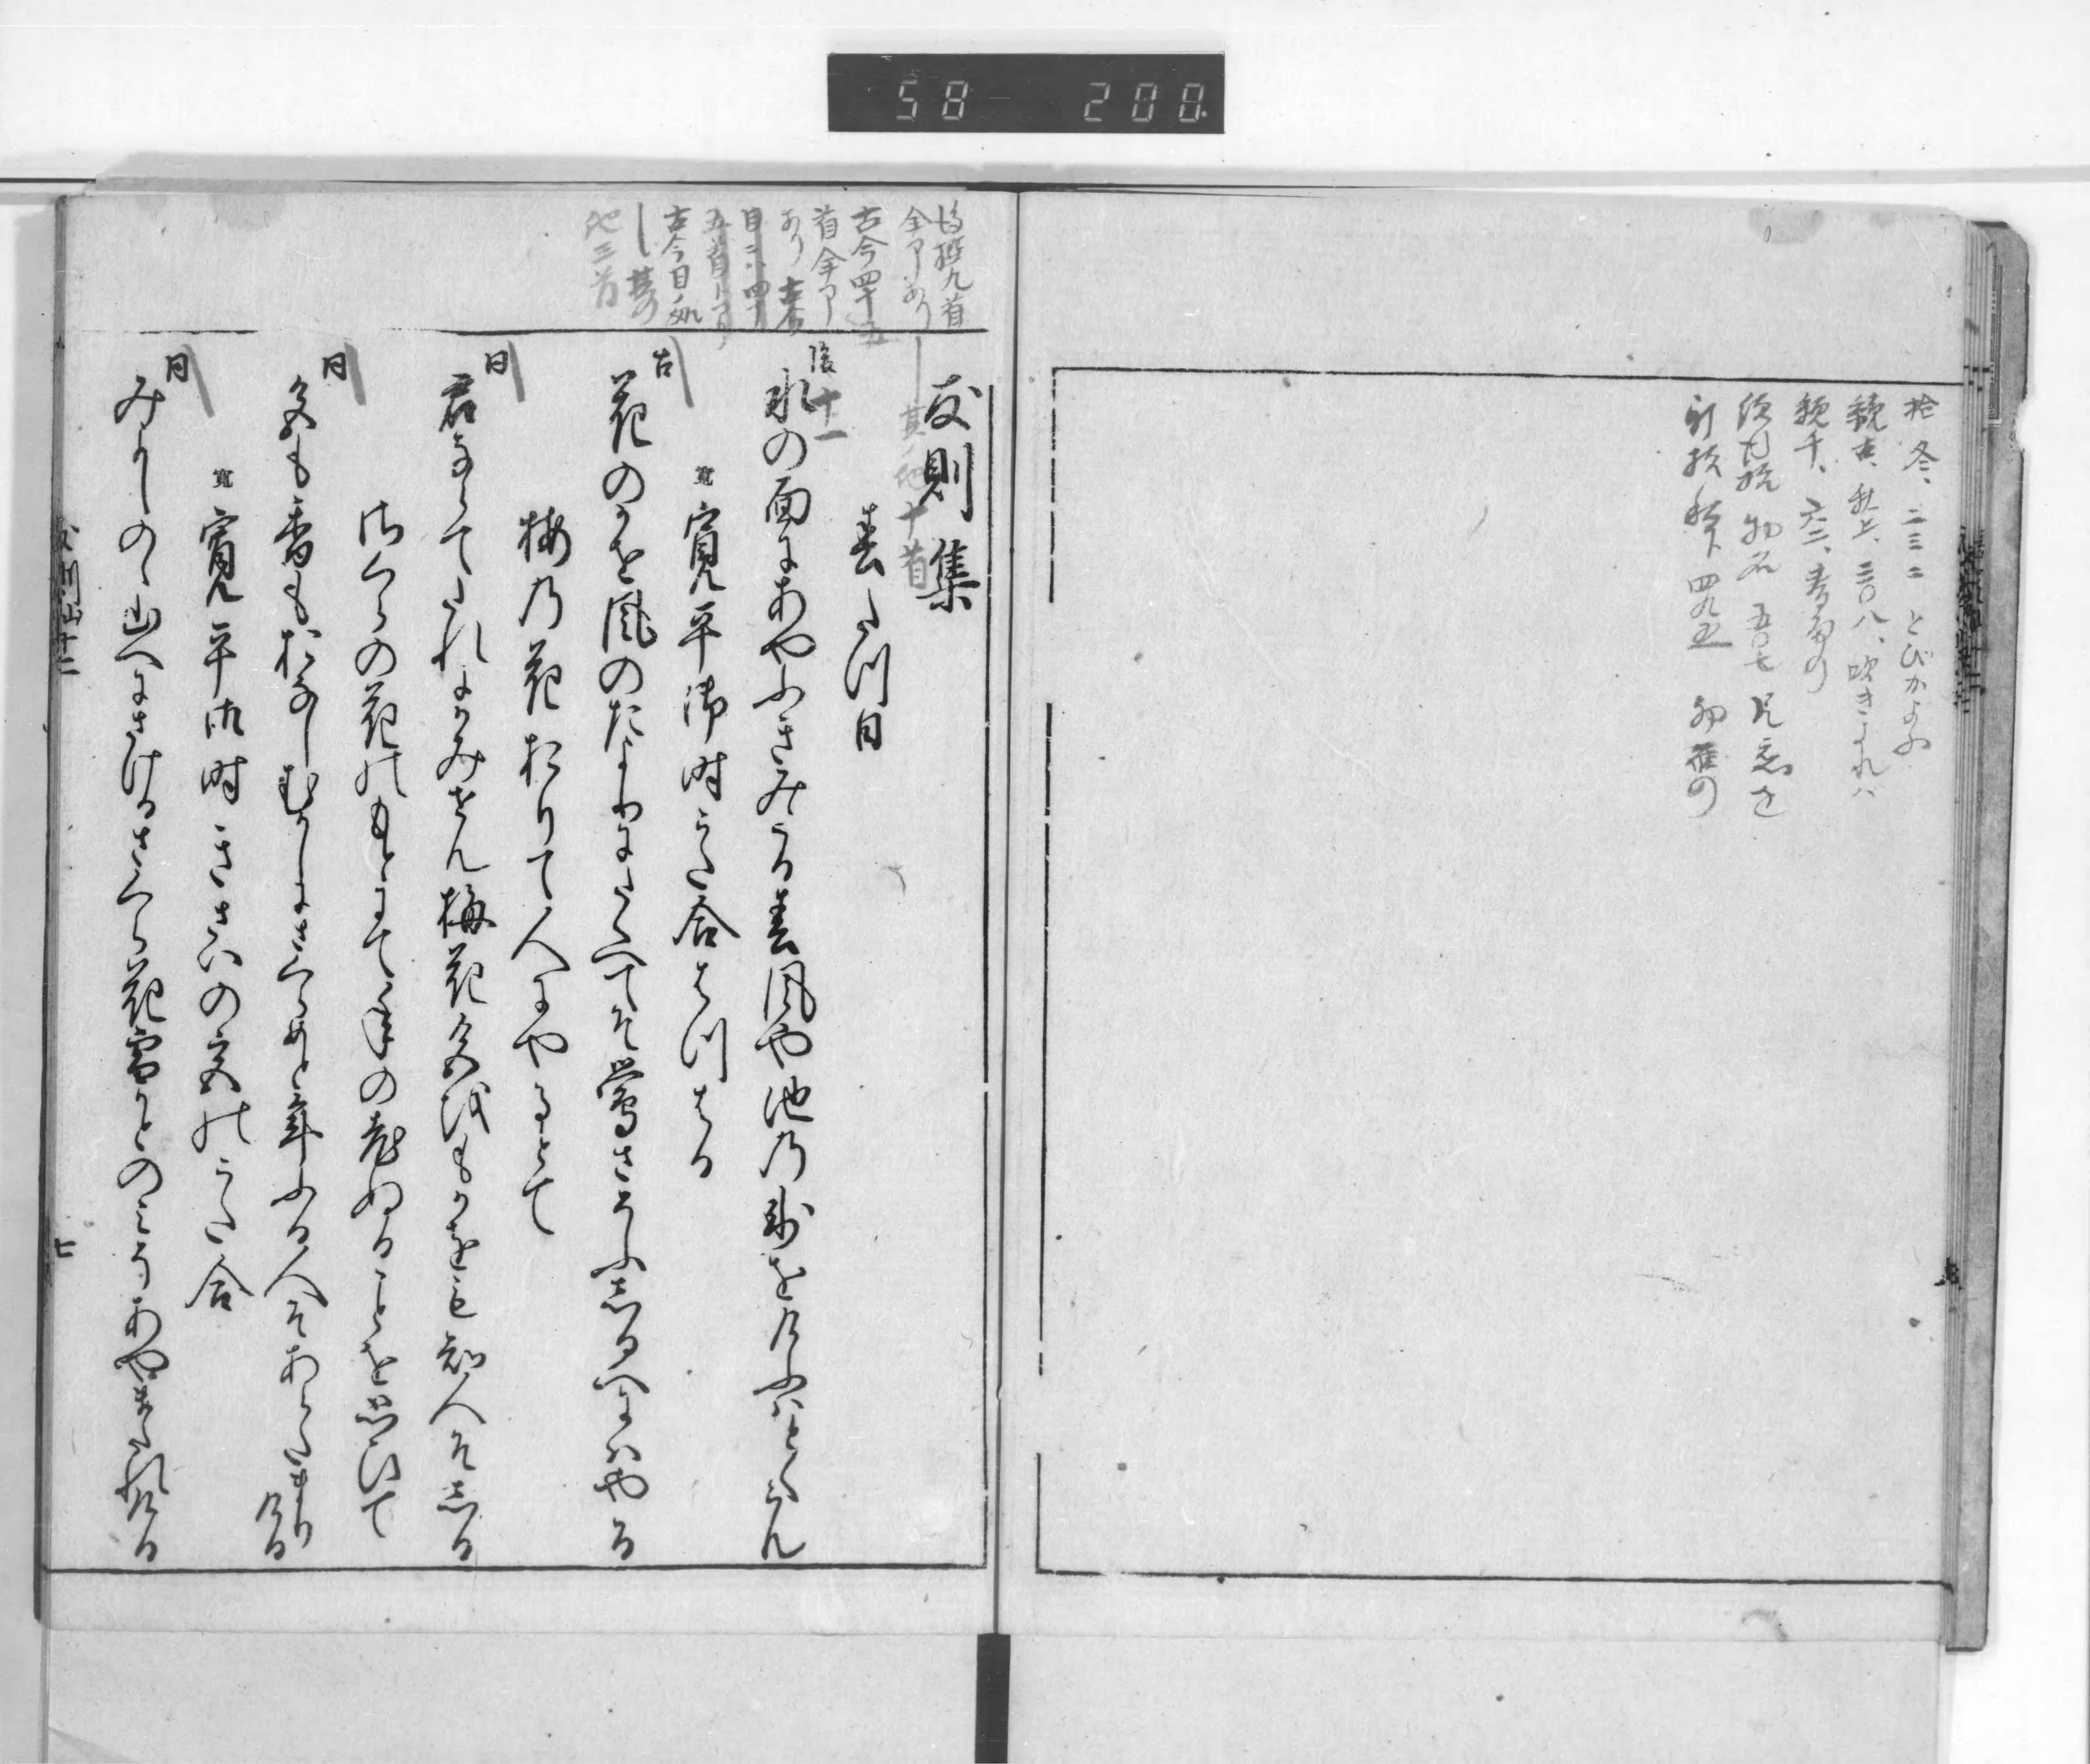 58 200
拾 冬、二三二 とびかよふ
続古、秋上、三〇八、吹きよれハ
続千、
物名 五〇七
四九五
後撰九首
全部あり
古今四十五
首全部
あり 古今
目ニハ四十
五首トアリ
古今目ノ処
他三首
其ノ他十首
友則集
春たつ日
後 十一
水の面にあやふきみたる春風や池の氷をけふはとくらん
寛 寛平御時うた合はつはる
古
花のかを風のたよりにたくへてそ鶯さそふしるへにはやる
梅の花おりて人にやるとて
同
君ならてたれにかみせん梅花色をもかをもしる人そしる
さくらの花のもとにて年の老ぬることを思ひて
同
色も香もおなしむかしにさくらめと年ふる人そあらたまりける
寛 寛平御時きさいの宮のうた合
同
みよしのゝ山へにさけるさくら花雪かとのみそあやまたれける
友則 十二
七